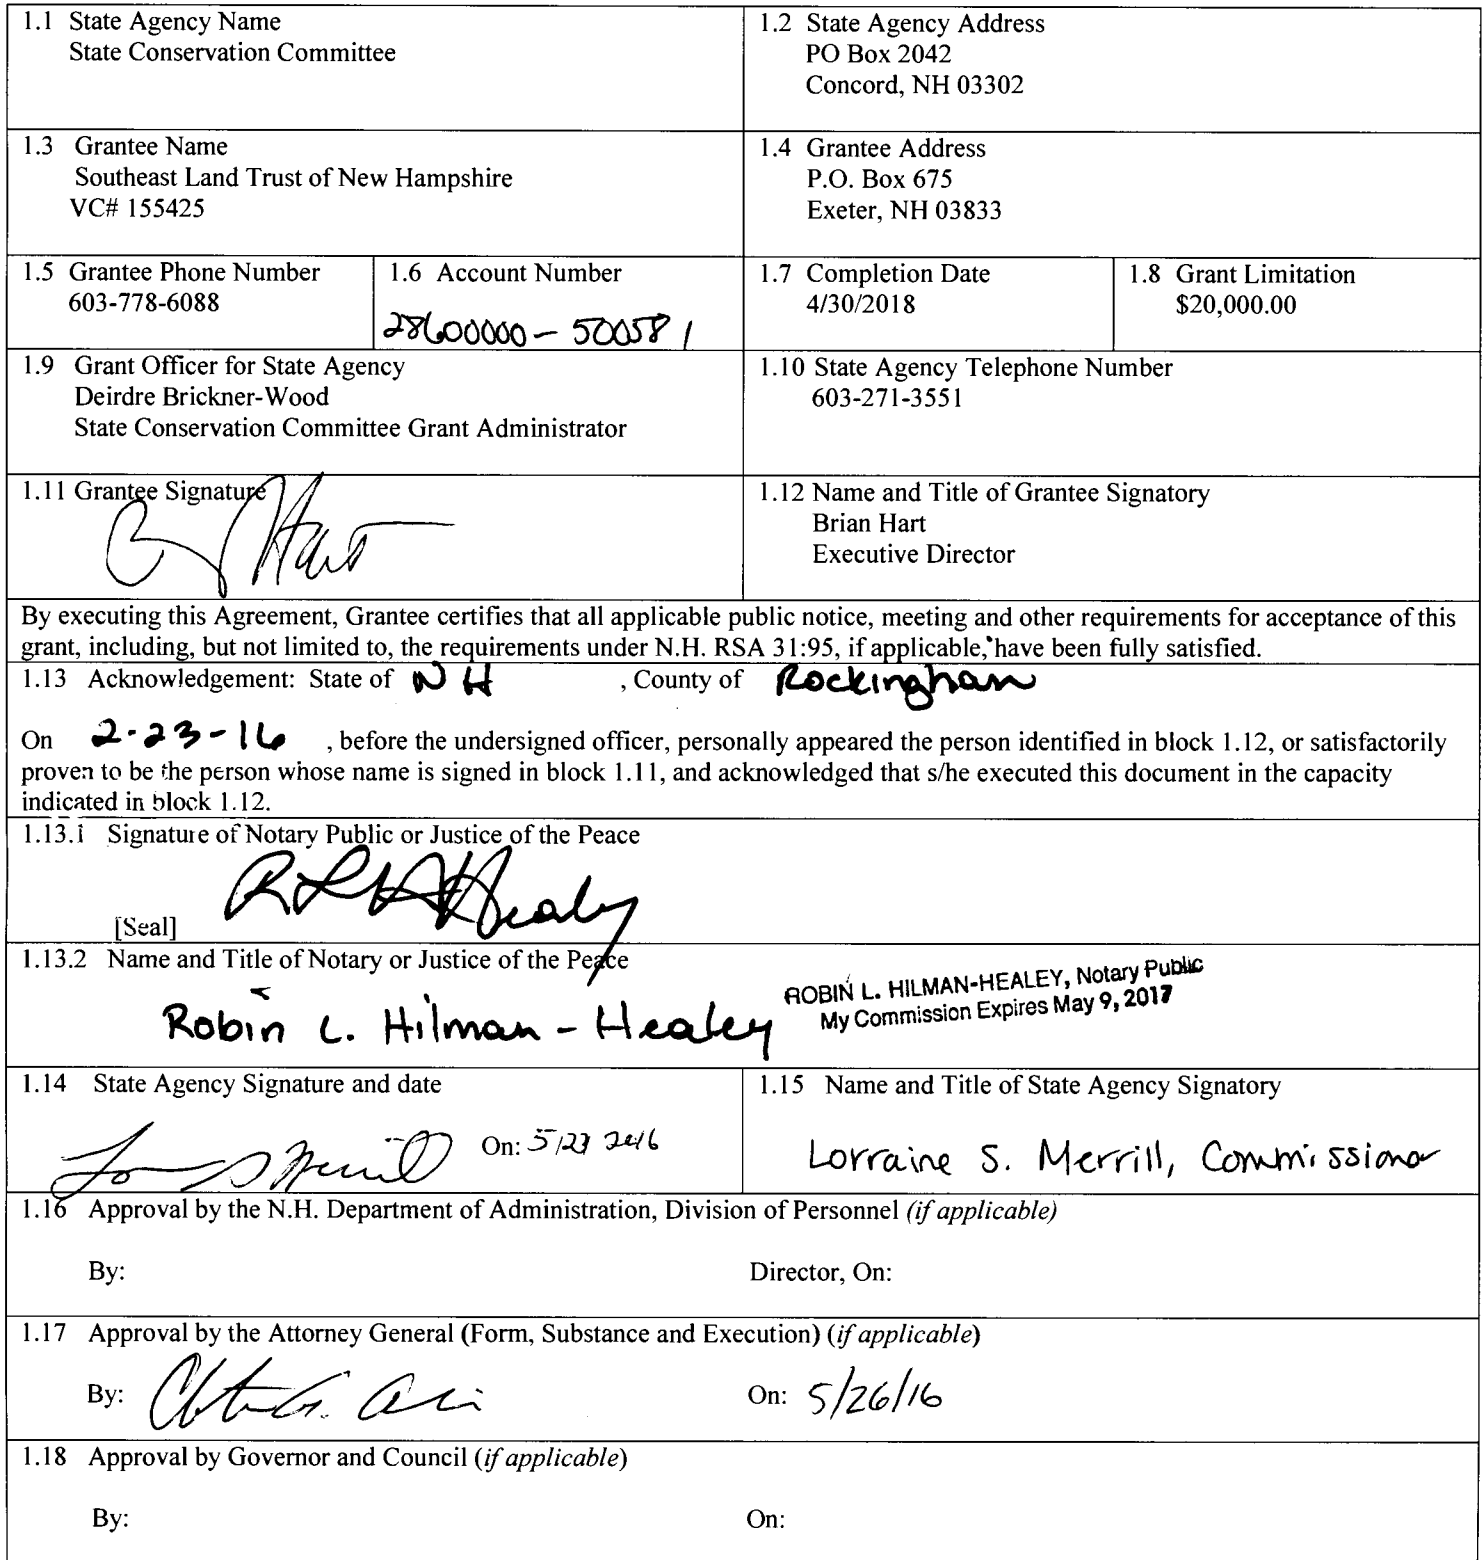 1.1 State Agency Name
State Conservation Committee
1.2 State Agency Address
PO Box 2042
Concord, NH 03302
1.3 Grantee Name
Southeast Land Trust of New Hampshire
VC# 155425
1.4 Grantee Address
P.O. Box 675
Exeter, NH 03833
1.5 Grantee Phone Number
603-778-6088
1.6 Account Number
28600000 - 500581
1.7 Completion Date
4/30/2018
1.8 Grant Limitation
$20,000.00
1.9 Grant Officer for State Agency
Deirdre Brickner-Wood
State Conservation Committee Grant Administrator
1.10 State Agency Telephone Number
603-271-3551
1.11 Grantee Signature
Hart
1.12 Name and Title of Grantee Signatory
Brian Hart
Executive Director
By executing this Agreement, Grantee certifies that all applicable public notice, meeting and other requirements for acceptance of this
grant, including, but not limited to, the requirements under N.H. RSA 31:95, if applicable, have been fully satisfied.
1.13 Acknowledgement: State of NH , County of Rockingham
On 2-23-16 , before the undersigned officer, personally appeared the person identified in block 1.12, or satisfactorily
proven to be the person whose name is signed in block 1.11, and acknowledged that s/he executed this document in the capacity
indicated in block 1.12.
1.13.1 Signature of Notary Public or Justice of the Peace
RLH Healey
[Seal]
1.13.2 Name and Title of Notary or Justice of the Peace
Robin L. Hilman-Healey
ROBIN L. HILMAN-HEALEY, Notary Public
My Commission Expires May 9, 2017
1.14 State Agency Signature and date
On: 5/23 2016
1.15 Name and Title of State Agency Signatory
Lorraine S. Merrill, Commissioner
1.16 Approval by the N.H. Department of Administration, Division of Personnel (if applicable)
By: Director, On:
1.17 Approval by the Attorney General (Form, Substance and Execution) (if applicable)
By: On: 5/26/16
1.18 Approval by Governor and Council (if applicable)
By: On: